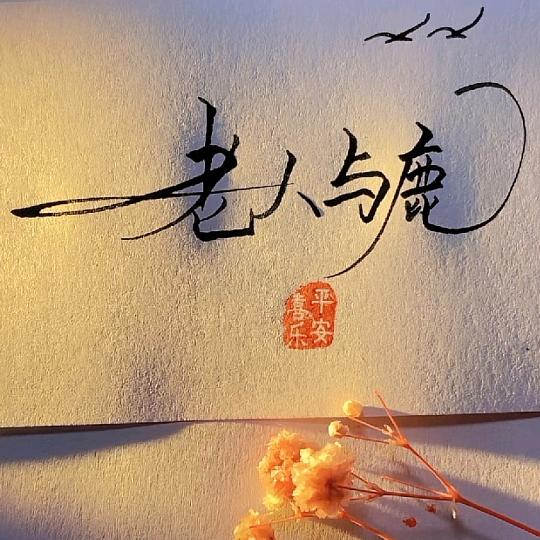 老人与鹿
平安
喜乐